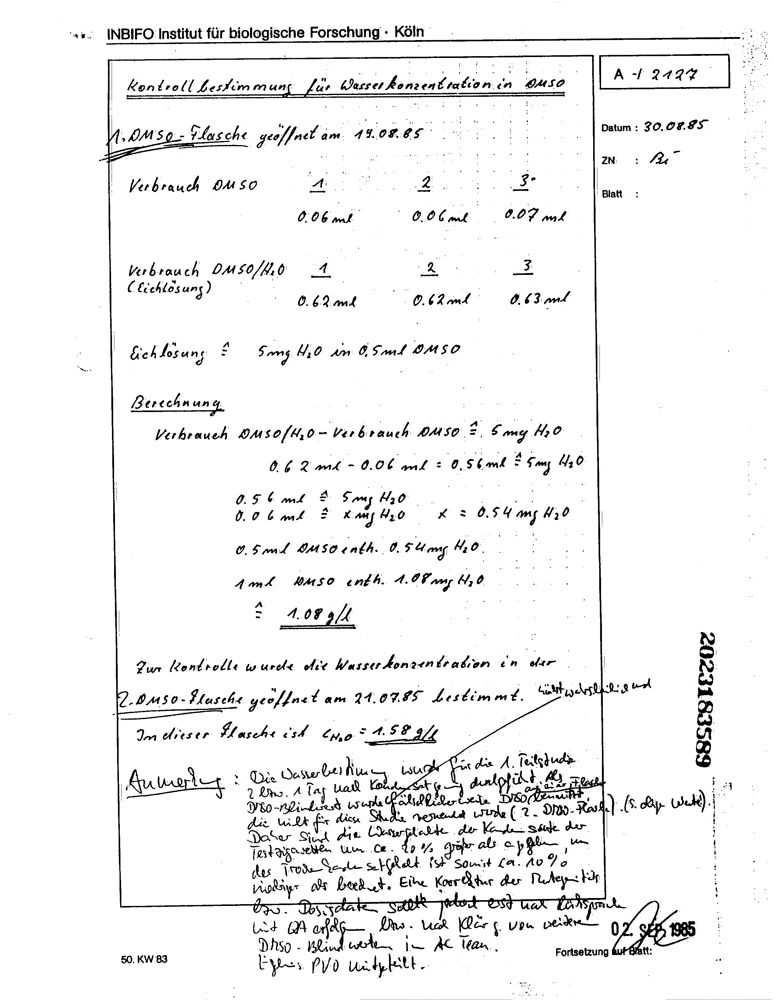 INBIFO Institut für biologische Forschung · Köln
A-I 2127
Kontrollbestimmung für Wasserkonzentration in DMSO
Datum : 30.08.85
ZN :
Blatt :
1. DMSO-Flasche geöffnet am 19.08.85
Verbrauch DMSO 1 2 3
0.06 ml 0.06 ml 0.07 ml
Verbrauch DMSO/H₂O 1 2 3
(Eichlösung)
0.62 ml 0.62 ml 0.63 ml
Eichlösung ≙ 5mg H₂O in 0,5ml DMSO
Berechnung
Verbrauch DMSO/H₂O - Verbrauch DMSO ≙ 5 mg H₂O
0.62 ml - 0.06 ml = 0.56 ml ≙ 5mg H₂O
0.56 ml ≙ 5mg H₂O
0.06 ml ≙ x mg H₂O x = 0.54 mg H₂O
0.5ml DMSO enth. 0.54mg H₂O
1ml DMSO enth. 1.08mg H₂O
≙ 1.08 g/l
Zur Kontrolle wurde die Wasserkonzentration in der
2. DMSO-Flasche geöffnet am 21.07.85 bestimmt.
In dieser Flasche ist c H₂O = 1.58 g/l
Anmerkung : Die Wasserbestimmung wurde für die 1. Teilstudie
2 bzw. 1 Tag nach durchgeführt. Als
DMSO-Blindwert wurde fälschlicherweise DMSO benutzt
die nicht für diese Studie verwendet wurde (2. DMSO-Flasche).
Daher sind die Wassergehalte der der
Testzigaretten um ca. 10% größer als angegeben,
der ist somit ca. 10%
niedriger als berechnet. Eine Korrektur der
bzw. Dosisdaten sollte jedoch erst nach Rücksprache
mit QA erfolgen bzw. nach Klärung von weiteren
DMSO-Blindwerten im AC Team.
PVO mitgeteilt.
02. SEP. 1985
50. KW 83
Fortsetzung auf Blatt:
2023183589